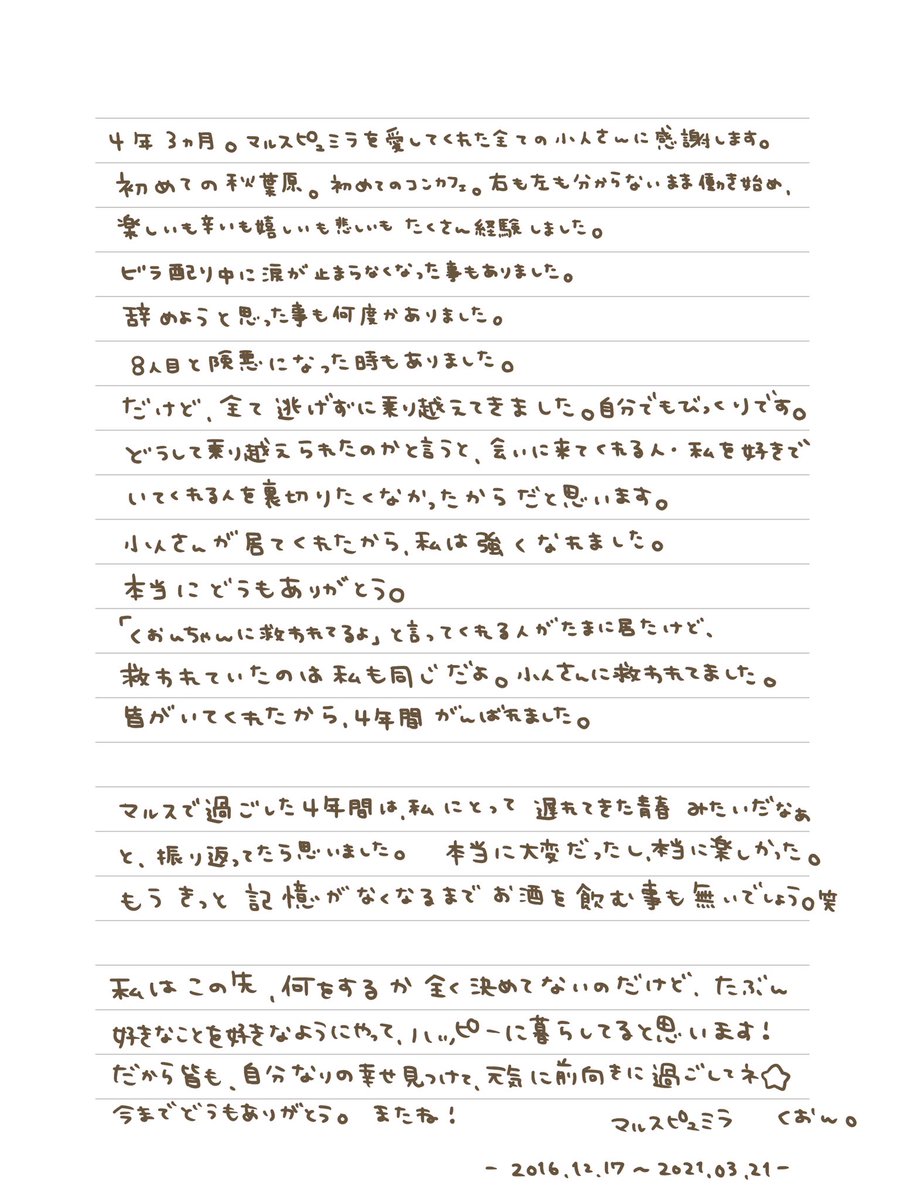 4年3ヵ月。マルスピュミラを愛してくれた全ての小人さんに感謝します。
初めての秋葉原。初めてのコンカフェ。右も左も分からないまま働き始め、
楽しいも辛いも嬉しいも悲しいもたくさん経験しました。
ビラ配り中に涙が止まらなくなった事もありました。
辞めようと思った事も何度かありました。
8人目と険悪になった時もありました。
だけど、全て逃げずに乗り越えてきました。自分でもびっくりです。
どうして乗り越えられたのかと言うと、会いに来てくれる人・私を好きで
いてくれる人を裏切りたくなかったからだと思います。
小人さんが居てくれたから、私は強くなれました。
本当にどうもありがとう。
「くおんちゃんに救われてるよ」と言ってくれる人がたまに居たけど、
救われていたのは私も同じだよ。小人さんに救われてました。
皆がいてくれたから、4年間がんばれました。
マルスで過ごした4年間は、私にとって遅れてきた青春みたいだなぁ
と、振り返ってたら思いました。 本当に大変だったし、本当に楽しかった。
もうきっと記憶がなくなるまでお酒を飲む事も無いでしょう。笑
私はこの先、何をするか全く決めてないのだけど、たぶん
好きなことを好きなようにやって、ハッピーに暮らしてると思います!
だから皆も、自分なりの幸せ見つけて、元気に前向きに過ごしてネ☆
今までどうもありがとう。 またね!
マルスピュミラ くおん。
- 2016.12.17〜2021.03.21 -